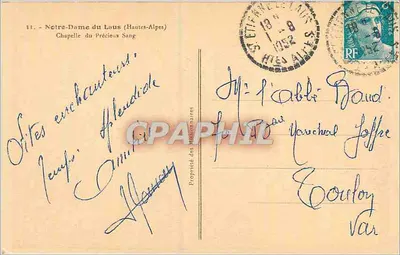 11. - Notre-Dame du Laus (Hautes-Alpes)
Chapelle du Précieux Sang
Sites enchanteurs.
Temps splendide
Amitiés
Propriété des Missionnaires
ST ETIENNE LE LAUS
18 H
1 - 8
1952
HTES ALPES
RF
Mr l'Abbé Baud
Maréchal Joffre
Toulon
Var
CPAPHIL